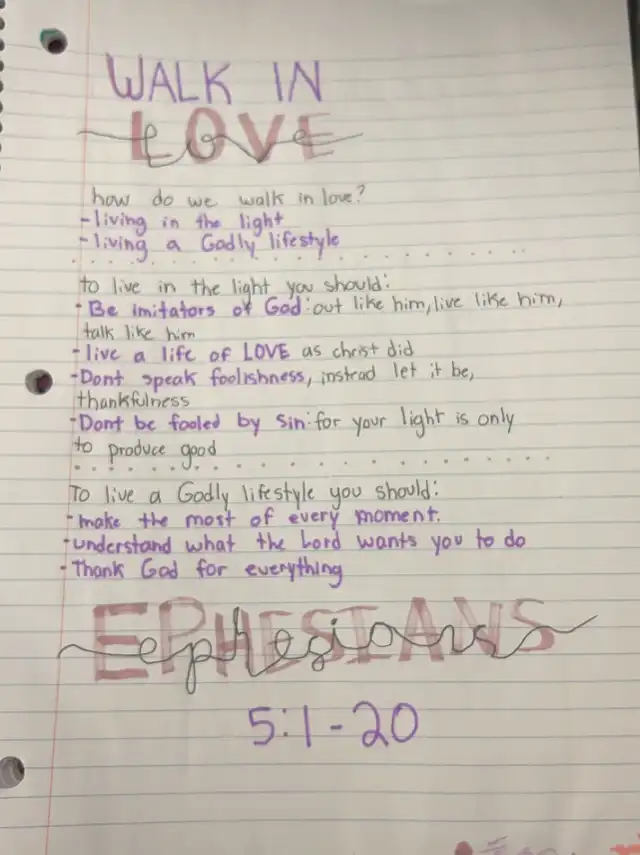 WALK IN
LOVE
love
how do we walk in love?
-living in the light
-living a Godly lifestyle
to live in the light you should:
- Be imitators of God: out like him, live like him,
talk like him
-live a life of LOVE as christ did
-Dont speak foolishness, instead let it be,
thankfulness
-Dont be fooled by sin: for your light is only
to produce good
To live a Godly lifestyle you should:
-make the most of every moment.
-understand what the Lord wants you to do
-Thank God for everything
EPHESIANS
ephesians
5:1-20